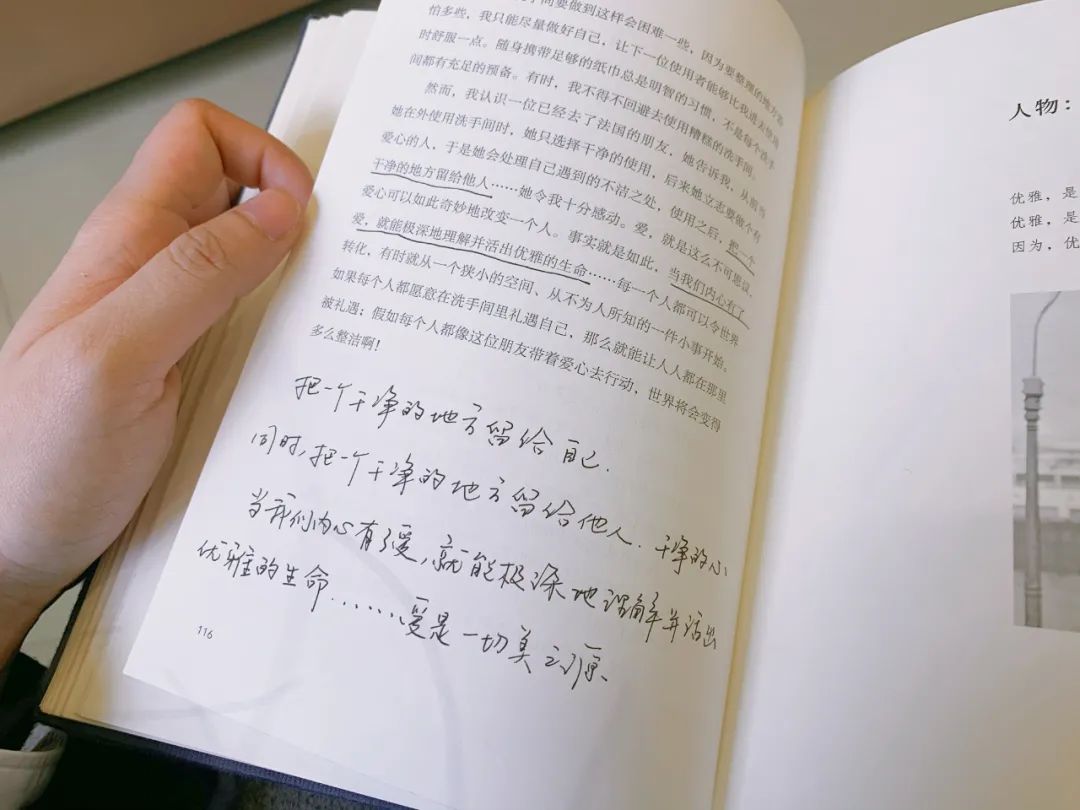 间要做到这样会困难一些，因为要整理的地方
怕多些，我只能尽量做好自己，让下一位使用者能够比我进去使用
时舒服一点。随身携带足够的纸巾总是明智的习惯，不是每个洗手
间都有充足的预备。有时，我不得不回避去使用糟糕的洗手间。
然而，我认识一位已经去了法国的朋友，她告诉我，从前当
她在外使用洗手间时，她只选择干净的使用，后来她立志要做个有
爱心的人，于是她会处理自己遇到的不洁之处，使用之后，把一个
干净的地方留给他人……她令我十分感动。爱，就是这么不可思议，
爱心可以如此奇妙地改变一个人。事实就是如此，当我们内心有了
爱，就能极深地理解并活出优雅的生命……每一个人都可以令世界
转化，有时就从一个狭小的空间、从不为人所知的一件小事开始。
如果每个人都愿意在洗手间里礼遇自己，那么就能让人人都在那里
被礼遇；假如每个人都像这位朋友带着爱心去行动，世界将会变得
多么整洁啊！
把一个干净的地方留给自己.
同时,把一个干净的地方留给他人.干净的心
当我们内心有了爱,就能极深地理解并活出
优雅的生命......爱是一切美之源
116
人物：
优雅，是
优雅，是
因为，优